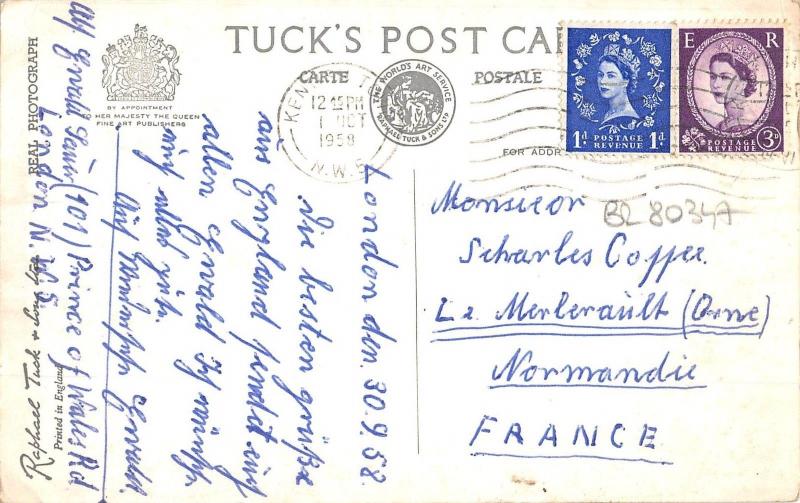 TUCK'S POST CAR
CARTE
POSTALE
REAL PHOTOGRAPH
BY APPOINTMENT
TO HER MAJESTY THE QUEEN
FINE ART PUBLISHERS
KEN T
12 45 PM
1 OCT
1958
N.W.5
THE WORLD'S ART SERVICE
RAPHAEL TUCK & SONS LTD
FOR ADDR
1d. POSTAGE REVENUE 1d.
E R
POSTAGE REVENUE 3D
London den 30.9.58.
Die besten Grüße
aus England sendet euch
allen Ewald
Ewald
(101) Prince of Wales Rd
London N.W.5
Raphael Tuck & Sons Ltd
Printed in England
Monsieur
Scharles Coffee.
Le Merlerault (Orne)
Normandie
FRANCE
BL 80347